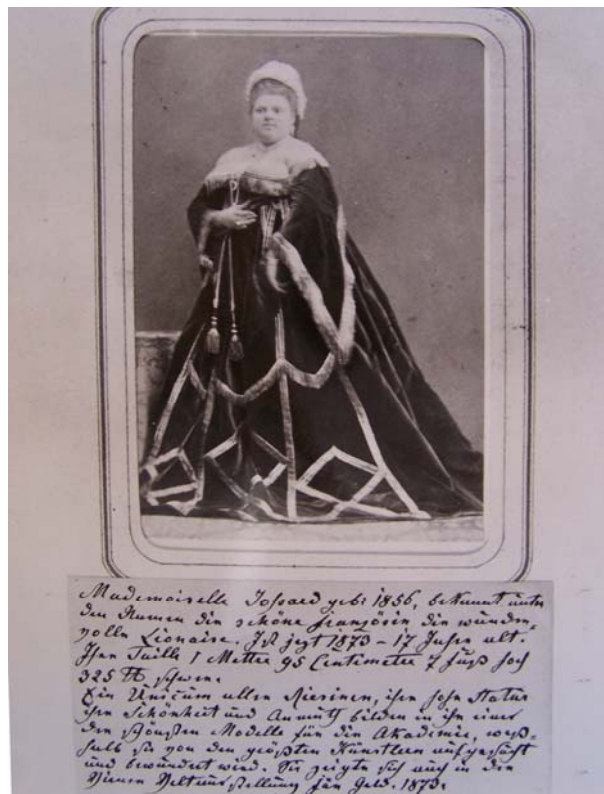 Mademoiselle Jossard geb: 1856, bekannt unter
den Namen die schöne Französin die wunder-
volle Lionaise. Ist jezt 1873 - 17 Jahre alt.
Ihre Taille 1 Mettre 95 Centimetre 7 Fuß hoch
325 ℔ schwer.
Ein Unicum aller Riesinen, ihre hohe Statur
ihre Schönheit und Anmuth bilden in ihr einer
der schönsten Modelle für die Akademie, weß-
halb sie von den größten Künstlern aufgesucht
und bewundert wird. Sie zeigte sich auch in der
Wiener Weltausstellung für Geld. 1873.